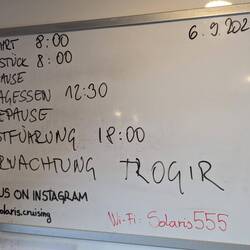 6.9.202
ART 8:00
STÜCK 8:00
AUSE
AGESSEN 12:30
EPAUSE
STFÜARUNG 18:00
RNACHTUNG TROGIR
US ON INSTAGRAM
olaris.cruising
Wi-Fi: Solaris555